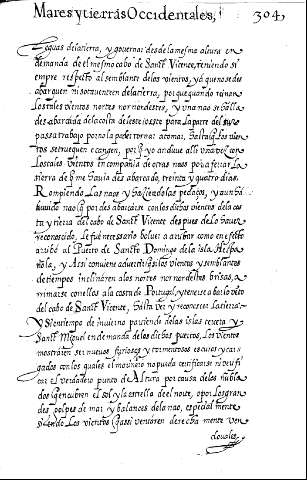 Mares y tierras Occidentales, 304
leguas de la tierra, y governar desde la mesma altura en
demanda de el mesmo cabo de Sanct Vicente, teniendo si
empre respecto al semblante de los vientos, y a que no se des
abarquen ni sotaventen de la tierra, porque quando reinan
los tales vientos nortes nornordestes, y una nao se halla
desabarcada de la costa de leste oeste para la parte del sur
passa trabajo por no la poder tornar a tomar. Hasta que los vien
tos se truequen o cansen, por que yo anduve alli una vez con
los tales vientos en compañia de otras naos por aferrar la
tierra de que me havia desabarcado, treinta y quatro dias.
Rompiendo las naos y haziendolas pedaços, y aun
nao que por des abarcarse con los dichos vientos de la cos
ta y tierra del cabo de Sanct Vicente despues de la haver
reconoscido, le fue necessario bolver a arribar como en efecto
arribó al Puerto de Sancto Domingo de la isla Hespa
ñola, y Assi conviene advertir que si los vientos y semblantes
de tiempos inclináren a los nortes nornordestes brisas, a
rrimarse con ellos a la costa de Portugal, y tenerse a barlovento
del cabo de Sanct Vicente, hasta ver y reconocer la tierra.
Y Si en tiempo de invierno partiendo de las islas tercera y
Sanct Miguel en demanda de los dichos puertos, los vientos
mostraren ser nuevos furiosos y tormentosos escuros y car
gados con los quales el marinero no pueda certificarse ni verifi
car el verdadero punto de Altura por causa de los nubla
dos que encubren el sol y la estrella de el norte, o por los gran
des golpes de mar y balances de la nao, especial mente
siendo los vientos que assi ventaren derecha mente ven
davales,